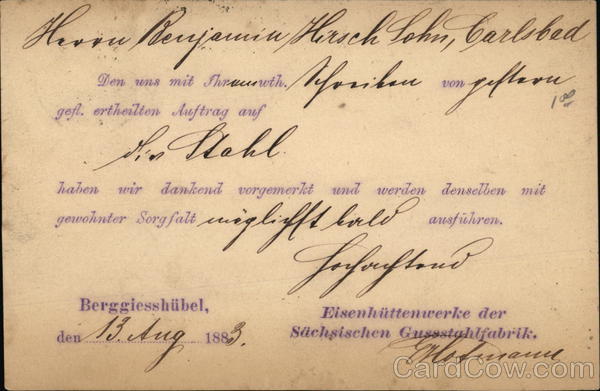 Herrn Benjamin Hirsch Sohn, Carlsbad
Den uns mit Ihrem wth. Schreiben von gestern
1 00
gefl. ertheilten Auftrag auf
div Stahl
haben wir dankend vorgemerkt und werden denselben mit
gewohnter Sorgfalt möglichst bald ausführen.
Hochachtend
Berggiesshübel,
den 13 Aug 1883.
Eisenhüttenwerke der
Sächsischen Gussstahlfabrik.
Hofmann
CardCow.com